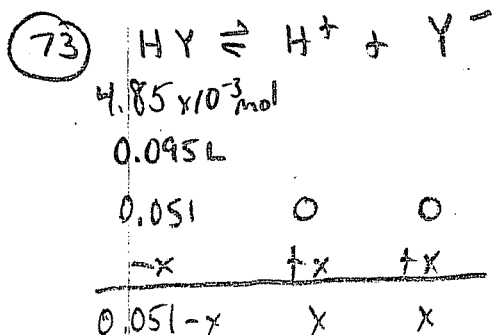 73 HY ⇌ H⁺ + Y⁻
4.85 x10⁻³ mol
0.095 L
0.051 0 0
-x +x +x
0.051-x x x